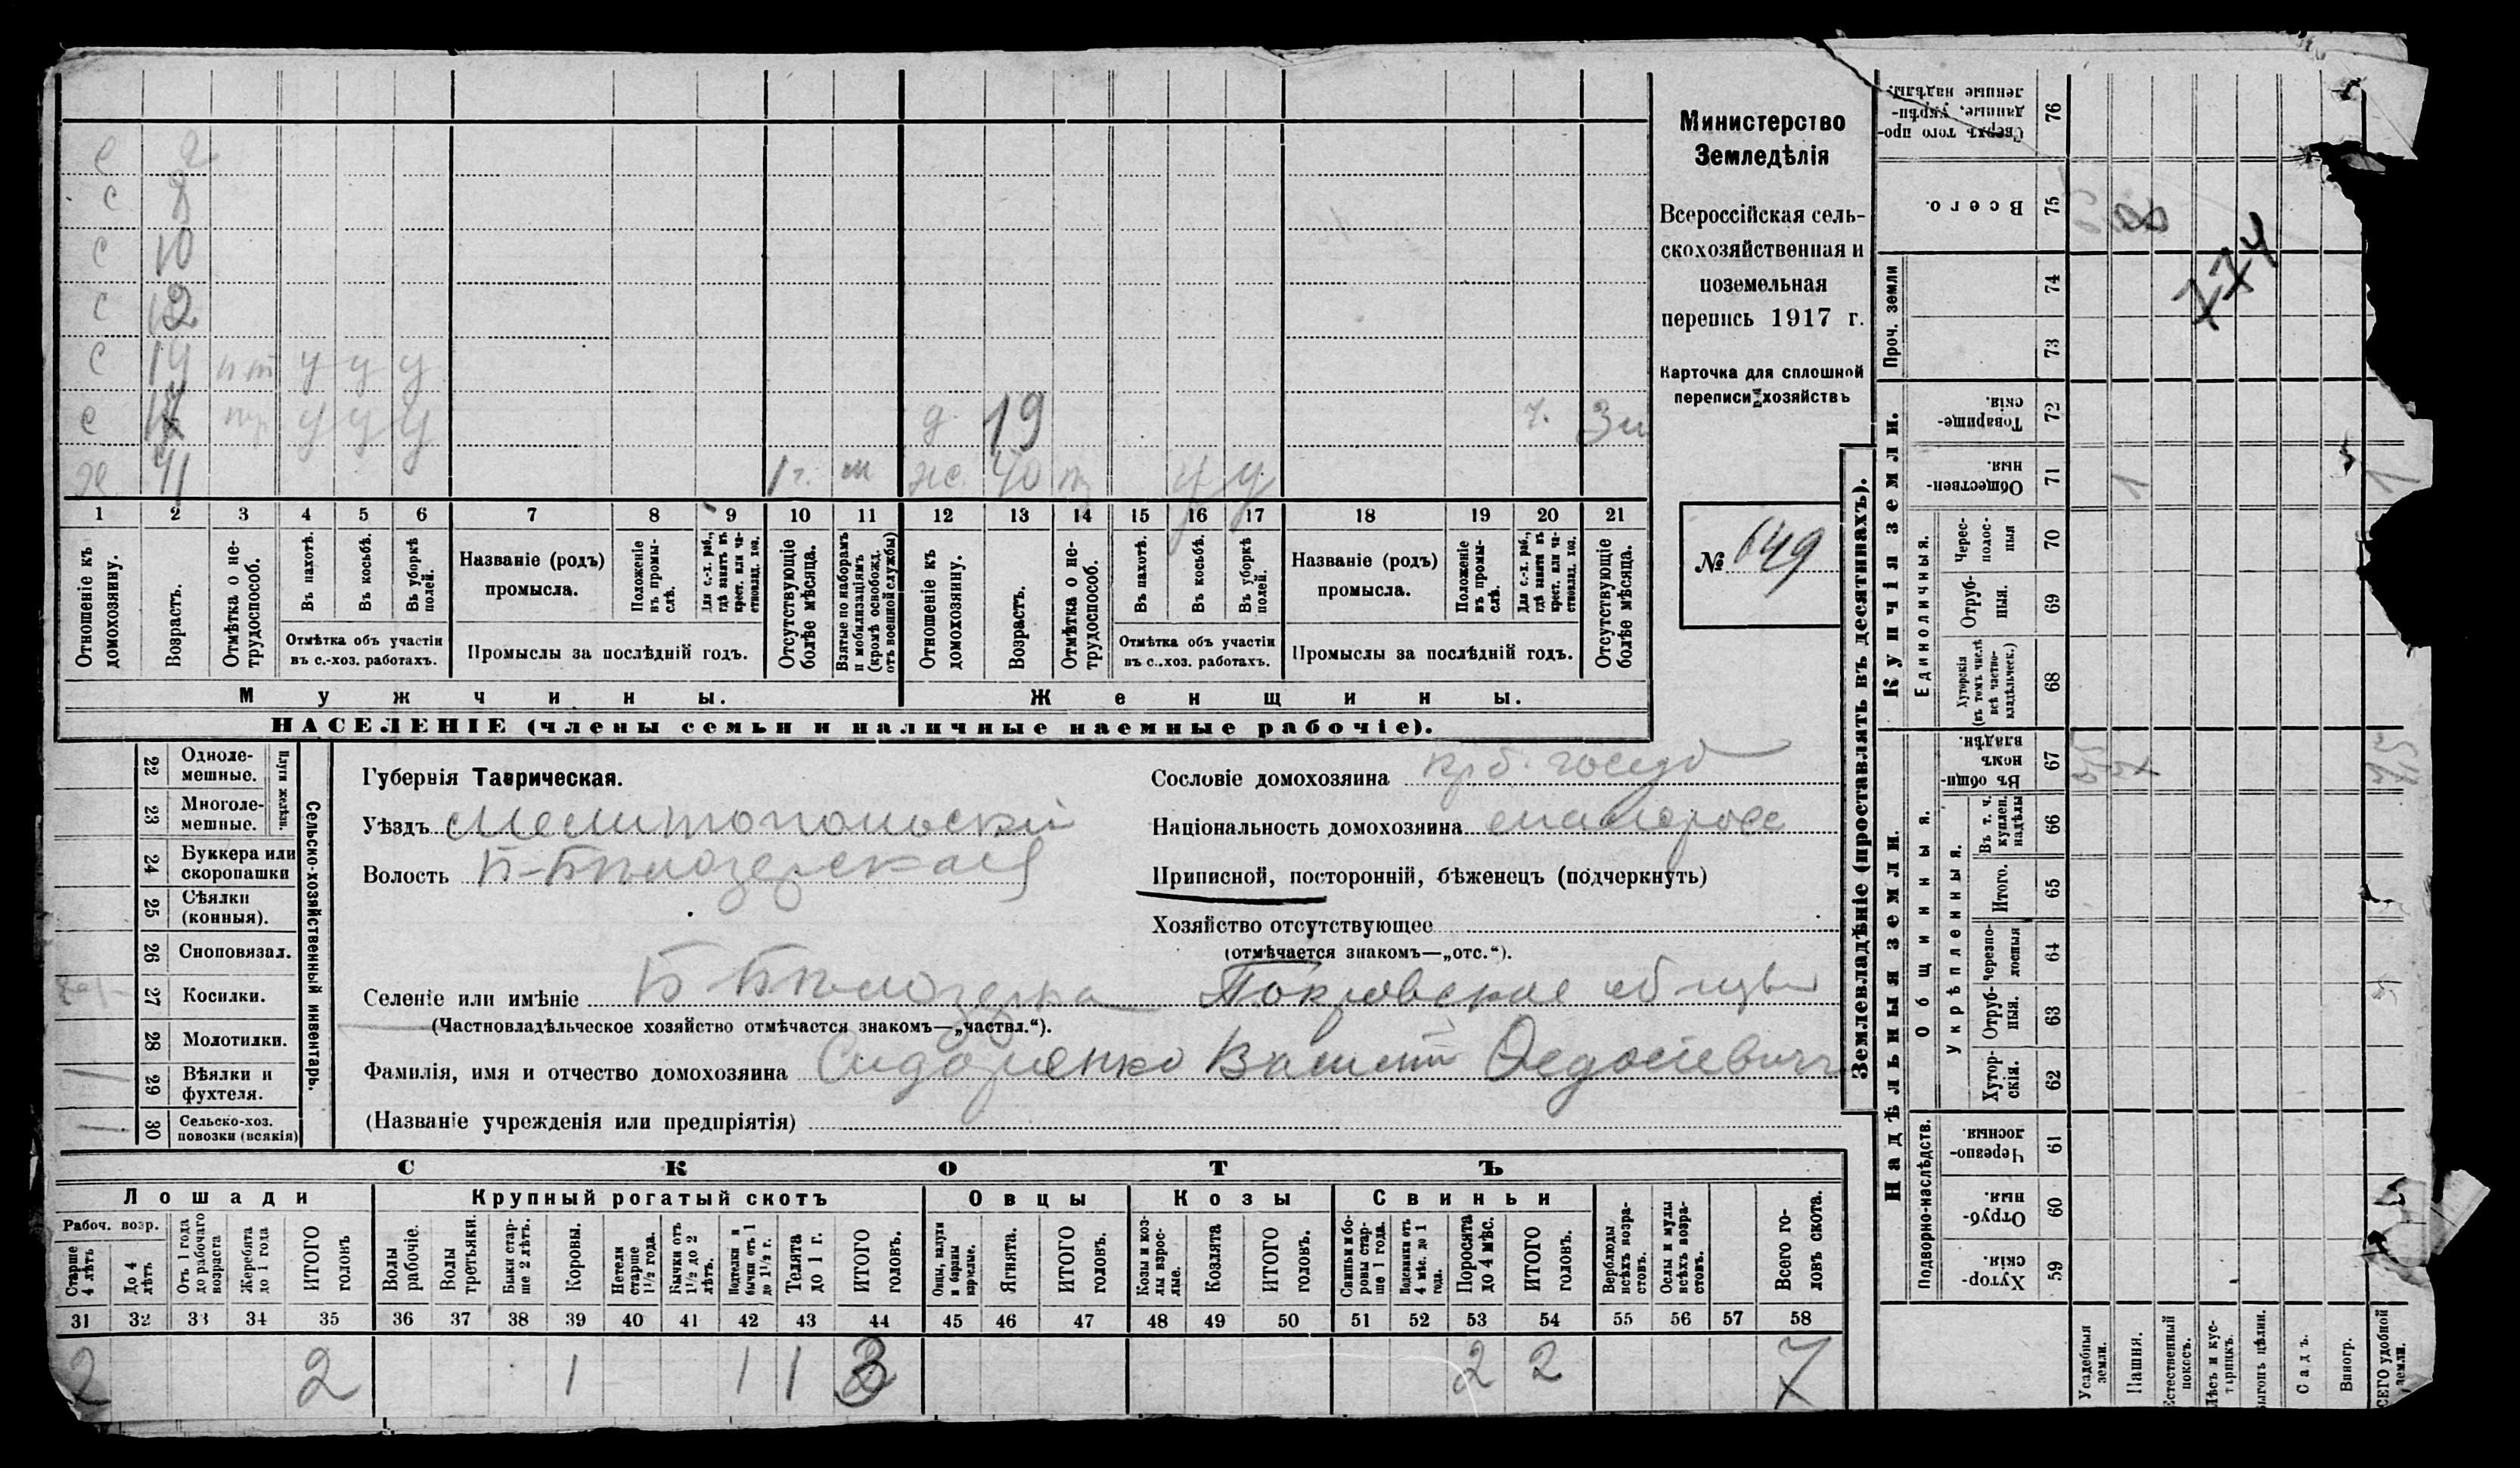 с 2
с 8
с 10
с 12
с 14 пт у у у
с у у у д 19 3 м
41 1 г. ж 40 у у
1 2 3 4 5 6 7 8 9 10 11 12 13 14 15 16 17 18 19 20 21
Отношеніе къ домохозяину.
Возрастъ.
Отмѣтка о не-трудоспособ.
Въ пахотѣ.
Въ косьбѣ.
Въ уборкѣ полей.
Отмѣтка объ участіи
въ с.-хоз. работахъ.
Названіе (родъ)
промысла.
Положеніе въ промы-слѣ.
Для с.-х. раб., гдѣ занятъ въ крест. или ча-стновлад. хоз.
Промыслы за послѣдній годъ.
Отсутствующіе болѣе мѣсяца.
Взятые по наборамъ и мобилизаціямъ (кромѣ освобожд. отъ военной службы)
Отношеніе къ домохозяину.
Возрастъ.
Отмѣтка о не-трудоспособ.
Въ пахотѣ.
Въ косьбѣ.
Въ уборкѣ полей.
Отмѣтка объ участіи
въ с..хоз. работахъ.
Названіе (родъ)
промысла.
Положеніе въ промы-слѣ.
Для с.-х. раб., гдѣ занятъ въ крест. или ча-стновлад. хоз.
Промыслы за послѣдній годъ.
Отсутствующіе болѣе мѣсяца.
Мужчины.
Женщины.
НАСЕЛЕНІЕ (члены семьи и наличные наемные рабочіе).
Министерство
Земледѣлія
Всероссійская сель-
скохозяйственная и
поземельная
перепись 1917 г.
Карточка для сплошной
переписи хозяйствъ
№ 649
22 Одноле-мешные.
23 Многоле-мешные.
Плуги желѣзн.
24 Буккера или скоропашки
25 Сѣялки (конныя).
26 Сноповязал.
27 Косилки.
28 Молотилки.
29 Вѣялки и фухтеля.
30 Сельско-хоз. повозки (всякія)
Сельско-хозяйственный инвентарь.
Губернія Таврическая.
Уѣздъ Мелитопольскій
Волость Б-Бѣлозерская
Селеніе или имѣніе Б Бѣлозерка Покровское общ
(Частновладѣльческое хозяйство отмѣчается знакомъ—„частвл.“).
Фамилія, имя и отчество домохозяина Сидоренко Василій Федосіевичъ
(Названіе учрежденія или предпріятія)
Сословіе домохозяина
Національность домохозяина малоросс
Приписной, посторонній, бѣженецъ (подчеркнуть)
Хозяйство отсутствующее
(отмѣчается знакомъ—„отс.“).
СКОТЪ
Лошади
Крупный рогатый скотъ
Овцы
Козы
Свиньи
Рабоч. возр.
Старше 4 лѣтъ
До 4 лѣтъ
Отъ 1 года до рабочаго возраста
Жеребята до 1 года
ИТОГО головъ
Волы рабочіе.
Волы третьяки.
Быки стар-ше 2 лѣтъ.
Коровы.
Нетели старше 1½ года.
Бычки отъ 1½ до 2 лѣтъ.
Подтелки и бычки отъ 1 до 1½ г.
Телята до 1 г.
ИТОГО головъ.
Овцы, валухи и бараны взрослые.
Ягнята.
ИТОГО головъ.
Козы и коз-лы взрос-лые.
Козлята
ИТОГО головъ.
Свиньи и бо-ровы стар-ше 1 года.
Подсвинки отъ 4 мѣс. до 1 года.
Поросята до 4 мѣс.
ИТОГО головъ.
Верблюды всѣхъ возра-стовъ.
Ослы и мулы всѣхъ возра-стовъ.
Всего го-ловъ скота.
31 32 33 34 35 36 37 38 39 40 41 42 43 44 45 46 47 48 49 50 51 52 53 54 55 56 57 58
2 2 1 1 1 3 2 2 7
Землевладѣніе (проставлять въ десятинахъ).
Купчія земли.
Надѣльныя земли.
Сверхъ того про-данные, укрѣп-ленные надѣлы. 76
Всего. 75
Проч. земли 74 73
Товарище-скія. 72
Обществен-ныя. 71 1 1
Единоличныя.
Черес-полос-ныя 70
Отруб-ныя. 69
Хуторскія (въ томъ числѣ всѣ частно-владѣльческ.) 68
Общинныя.
Въ общи-номъ владѣн. 67
Укрѣпленныя.
Въ т. ч. куплен. надѣлы 66
Итого. 65
Черезпо-лосныя 64
Отруб-ныя. 63
Хутор-скія. 62
Подворно-наслѣдств.
Черезпо-лосныя. 61
Отруб-ныя. 60
Хутор-скія. 59
774
Усадебныя земли.
Пашня.
Естественный покосъ.
Лѣсъ и кус-тарникъ.
Выгонъ цѣлин.
Садъ.
Виногр.
ВСЕГО удобной земли.